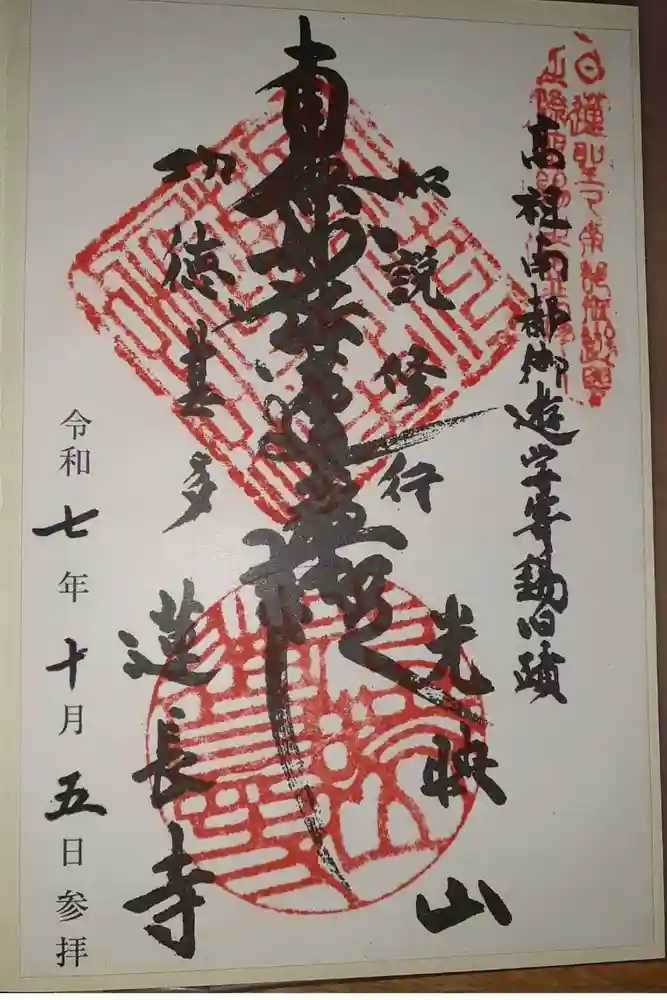 高祖南都御遊学寄錫旧蹟
如説修行
南無妙法蓮華経
功徳甚多
光映山
蓮長寺
令和七年十月五日参拝